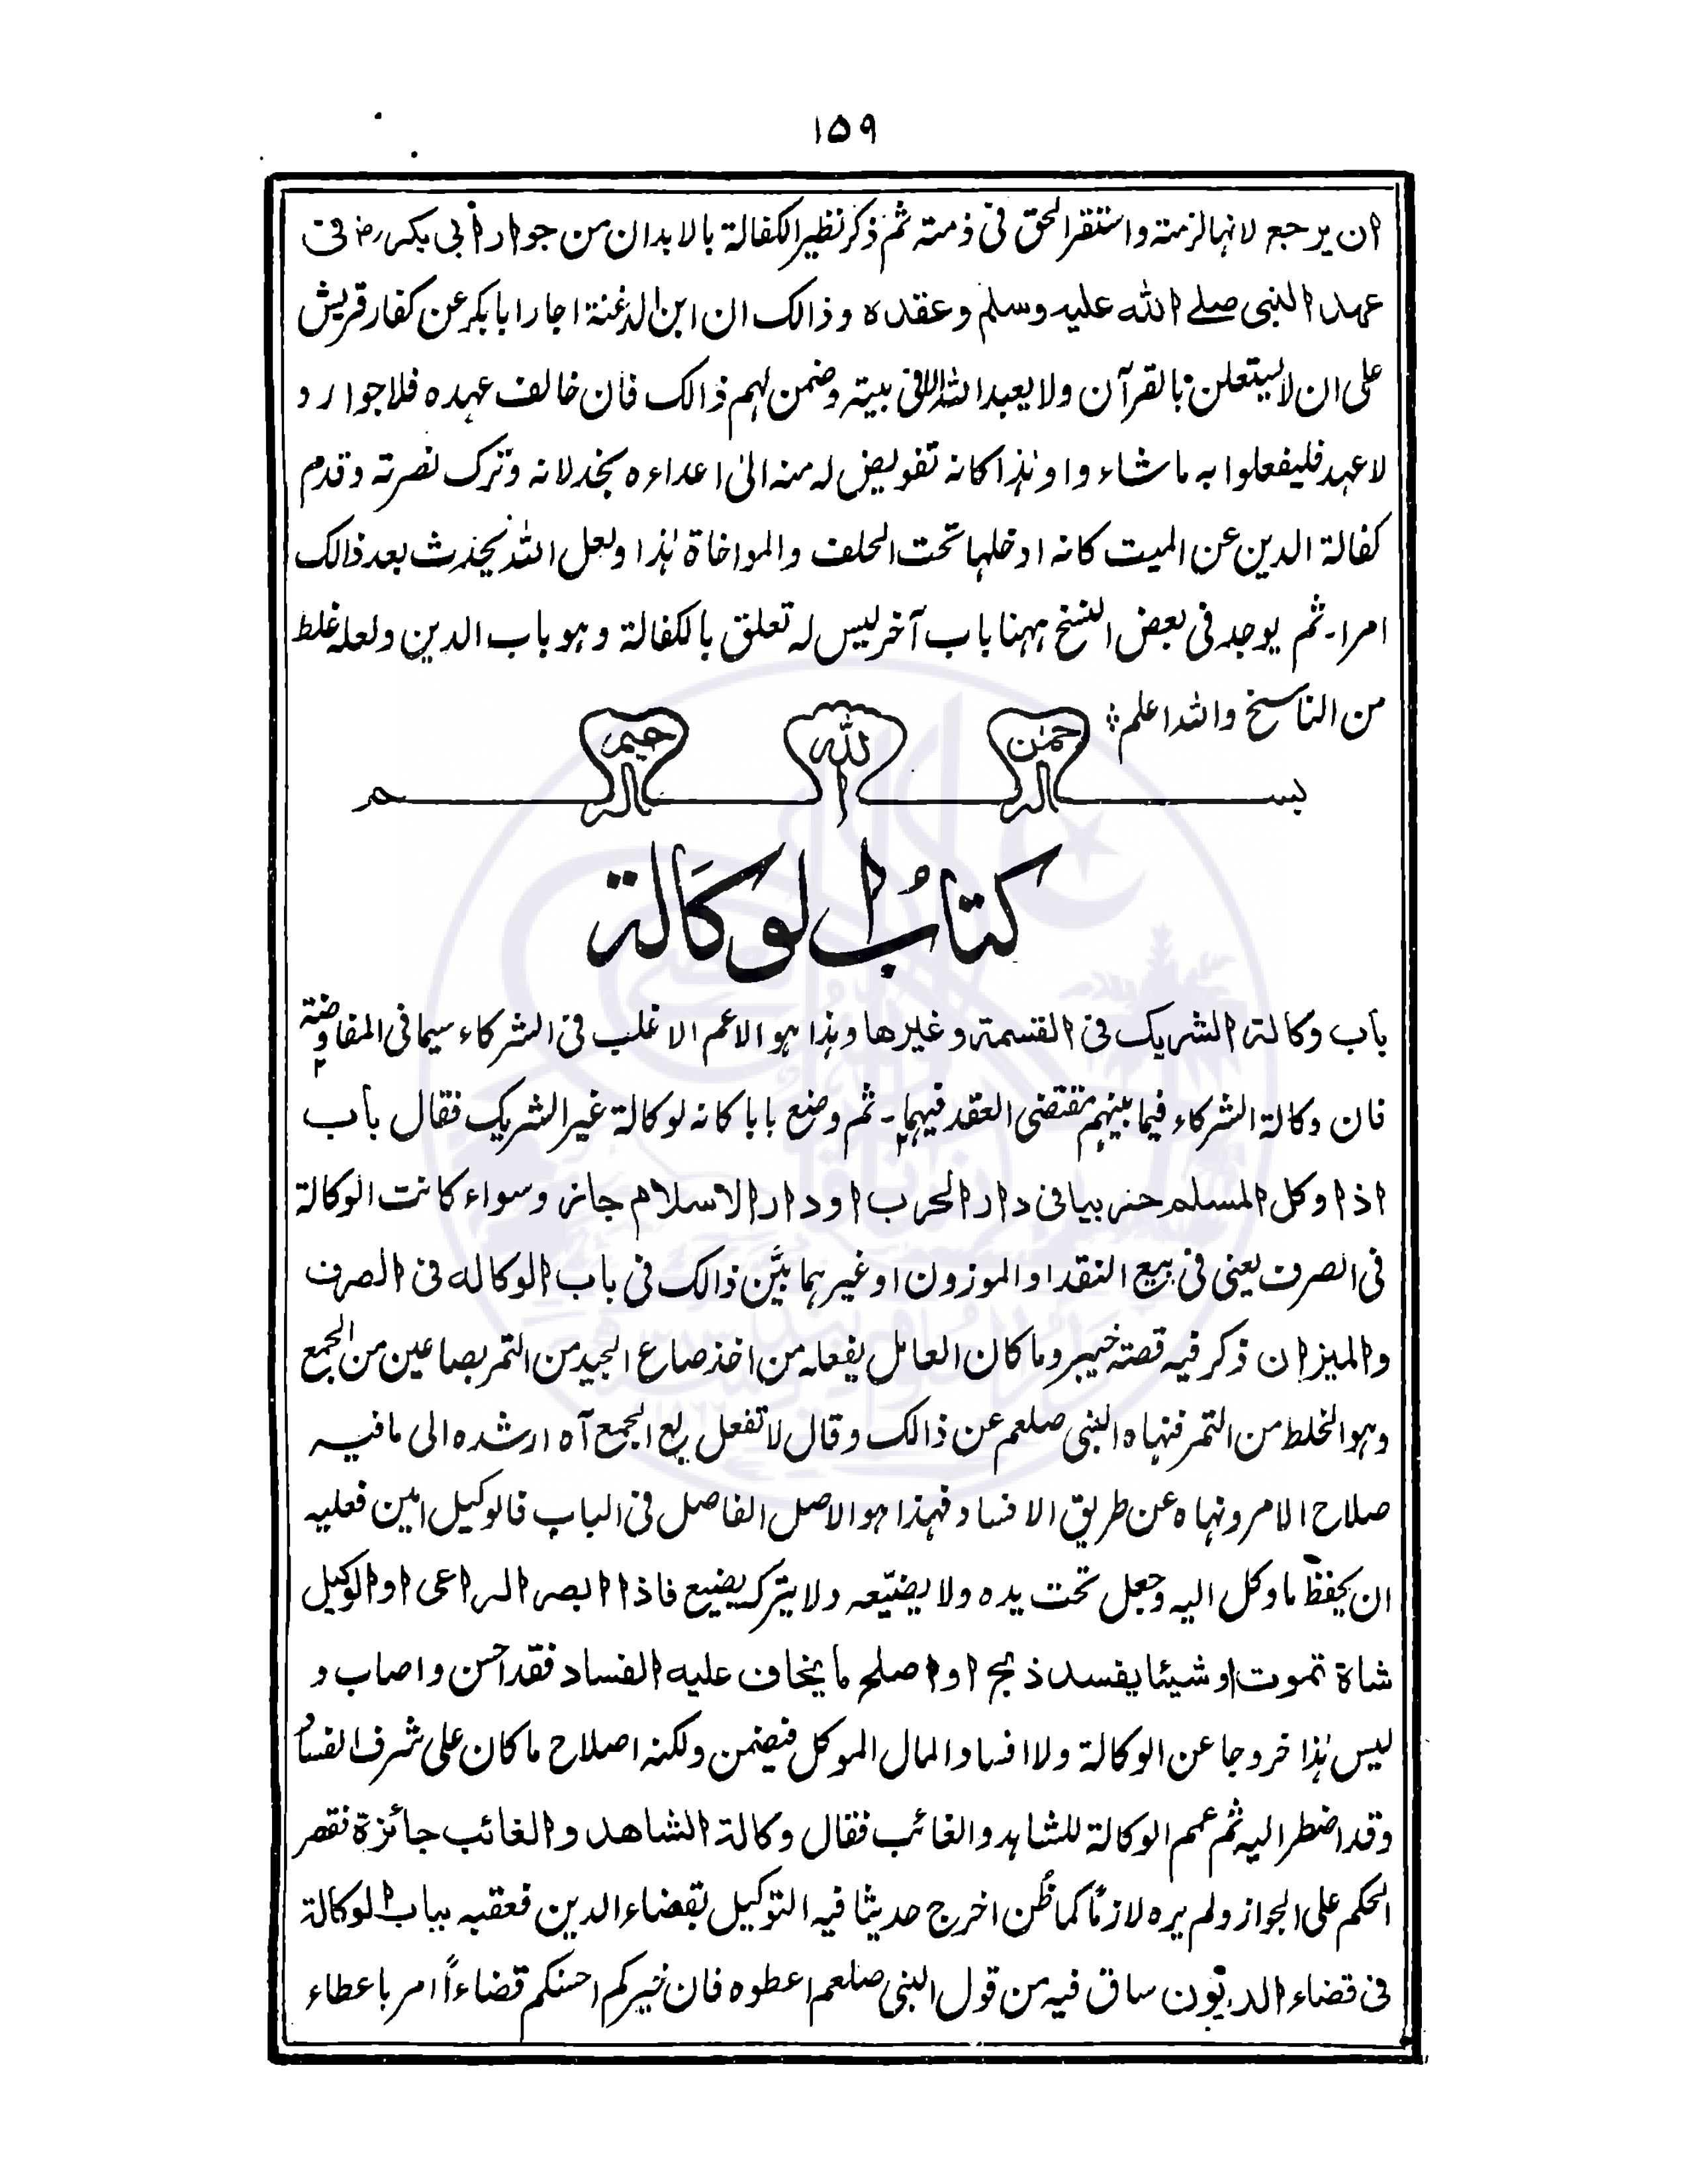 ۱۵۹
ان يرجع لانها لزمته واستقر الحق فى ذمته ثم ذكر نظير الكفالة بالابدان من جوار أبى بكر رض فى
عهد النبى صلے الله عليه وسلم وعقده وذالك ان ابن الدغنة اجار ابا بكر عن كفار قريش
على ان لا يستعلن بالقرآن ولا يعبد الله الا فى بيته وضمن لهم ذالك فان خالف عهده فلا جوار و
لا عهد فليفعلوا به ما شاء وا وهٰذا كانه تفويض له منه الىٰ اعداءه بخذلانه وترك نصرته وقدم
كفالة الدين عن الميت كانه ادخلها تحت الحلف والمواخاة هٰذا ولعل الله يحدث بعد ذالك
امرا۔ ثم يوجد فى بعض النسخ ههنا باب آخر ليس له تعلق بالكفالة وهو باب الدين ولعله غلط
من الناسخ والله اعلم
بسم الله الرحمٰن الرحيم
كتابُ الوكَالة
باب وكالة الشريك فى القسمة وغيرها وهٰذا هو الاعم الاغلب فى الشركاء سيما فى المفاوضة
فان وكالة الشركاء فيما بينهم مقتضى العقد فيهما۔ ثم وضع بابا كانه لوكالة غير الشريك فقال باب
اذا وكل المسلم حربيا فى دار الحرب او دار الاسلام جاز وسواء كانت الوكالة
فى الصرف يعنى فى بيع النقد او الموزون او غيرهما بيَّن ذالك فى باب الوكاله فى الصرف
والميزان ذكر فيه قصته خيبر وما كان العامل يفعله من اخذ صاع الجيد من التمر بصاعين من الجمع
وهو الخلط من التمر فنهاه النبى صلعم عن ذالك وقال لا تفعل بع الجمع آه ارشده الى ما فيه
صلاح الامر ونهاه عن طريق الافساد فهذا هو الاصل الفاصل فى الباب فالوكيل امين فعليه
ان يحفظ ما وكل اليه وجعل تحت يده ولا يضيّعه ولا يتركه يضيع فاذا ابصر الراعى او الوكيل
شاة تموت او شيئا يفسد ذبح او اصلح ما يخاف عليه الفساد فقد احسن واصاب و
ليس هٰذا خروجا عن الوكالة ولا افسادا لمال الموكل فيضمن ولكنه اصلاح ما كان على شرف الفساد
وقد اضطر اليه ثم عمم الوكالة للشاهد والغائب فقال وكالة الشاهد والغائب جائزة فقصر
الحكم على الجواز ولم يره لازمًا كما ظُن اخرج حديثا فيه التوكيل بقضاء الدين فعقبه بباب الوكالة
فى قضاء الديون ساق فيه من قول النبى صلعم اعطوه فان خيركم احسنكم قضاءاً امر باعطاء